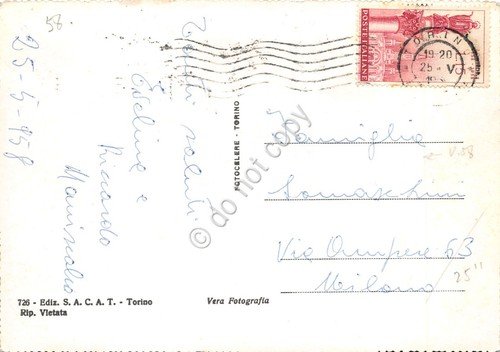 58.
25-5-958
Tanti saluti
Evelina e
Riccardo
Maniscalco
FOTOCELERE - TORINO
726 - Ediz. S. A. C. A. T. - Torino
Rip. Vietata
Vera Fotografia
POSTE ITALIANE
TORINO
19-20
25 V
Famiglia
Somaschini
Via Ampere 63
Milano
V.58
25"
© do not copy